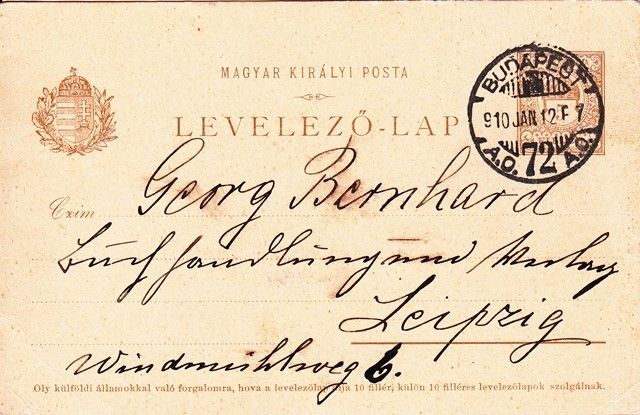 MAGYAR KIRÁLYI POSTA
LEVELEZŐ-LAP
BUDAPEST
910 JAN 12 F 7
A.O. 72 A.O.
Czim Georg Bernhard
Buchhandlung und Verlag
Leipzig
Windmühlweg 6.
Oly külföldi államokkal való forgalomra, hova a levelezőlap dija 10 fillér, külön 10 filléres levelezőlapok szolgálnak.